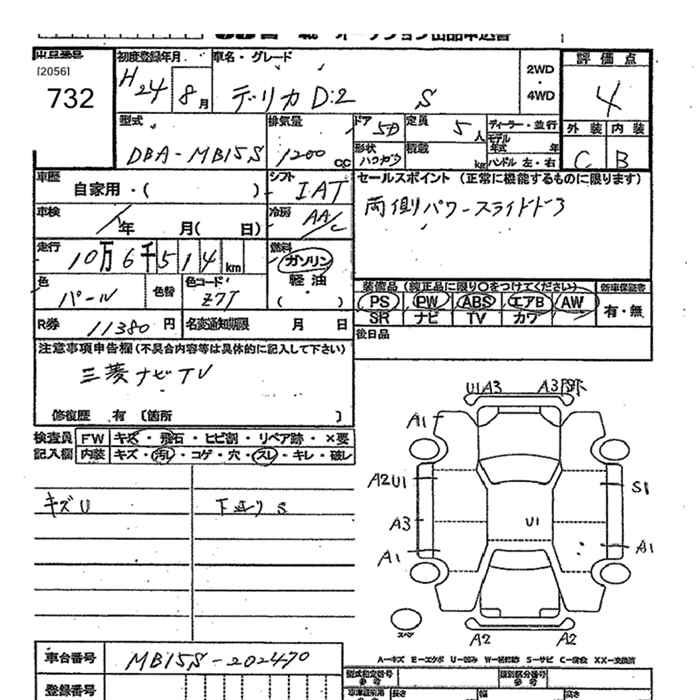 オークション出品申込書
出品番号
[2056]
732
初度登録年月
H24 8月
車名・グレード
デリカD:2 S
2WD
・
4WD
評価点
4
外装 内装
C B
型式
DBA-MB15S
排気量
1200 cc
ドア 5D
形状
定員 5人
積載 kg
ディーラー・並行
モデル年式 年
ハンドル 左・右
車歴 自家用・( )
シフト IAT
車検 年 月( 日)
冷房 AA/C
セールスポイント (正常に機能するものに限ります)
両側パワースライドドア
走行 10万6千514km
燃料
ガソリン
軽油
( )
色 パール
色替
色コード Z7T
装備品 (純正品に限り○をつけてください)
新車保証書
PS PW ABS エアB AW
SR ナビ TV カワ
有・無
R券 11380円
名変通知期限 月 日
後日品
注意事項申告欄(不具合内容等は具体的に記入して下さい)
三菱ナビTV
修復歴 有 〔箇所 〕
検査員記入欄
FW キズ・飛石・ヒビ割・リペア跡・×要
内装 キズ・汚れ・コゲ・穴・スレ・キレ・破レ
キズU
下廻りS
U1A3 A3
A1
A2U1
S1
A3
U1
A1
A1
スペア
A2 A2
A-キズ E-エクボ U-凹み W-補修跡 S-サビ C-腐食 XX-交換済
車台番号 MB15S-202470
登録番号
型式指定番号
参考
類別区分番号
参考
長さ 幅 高さ